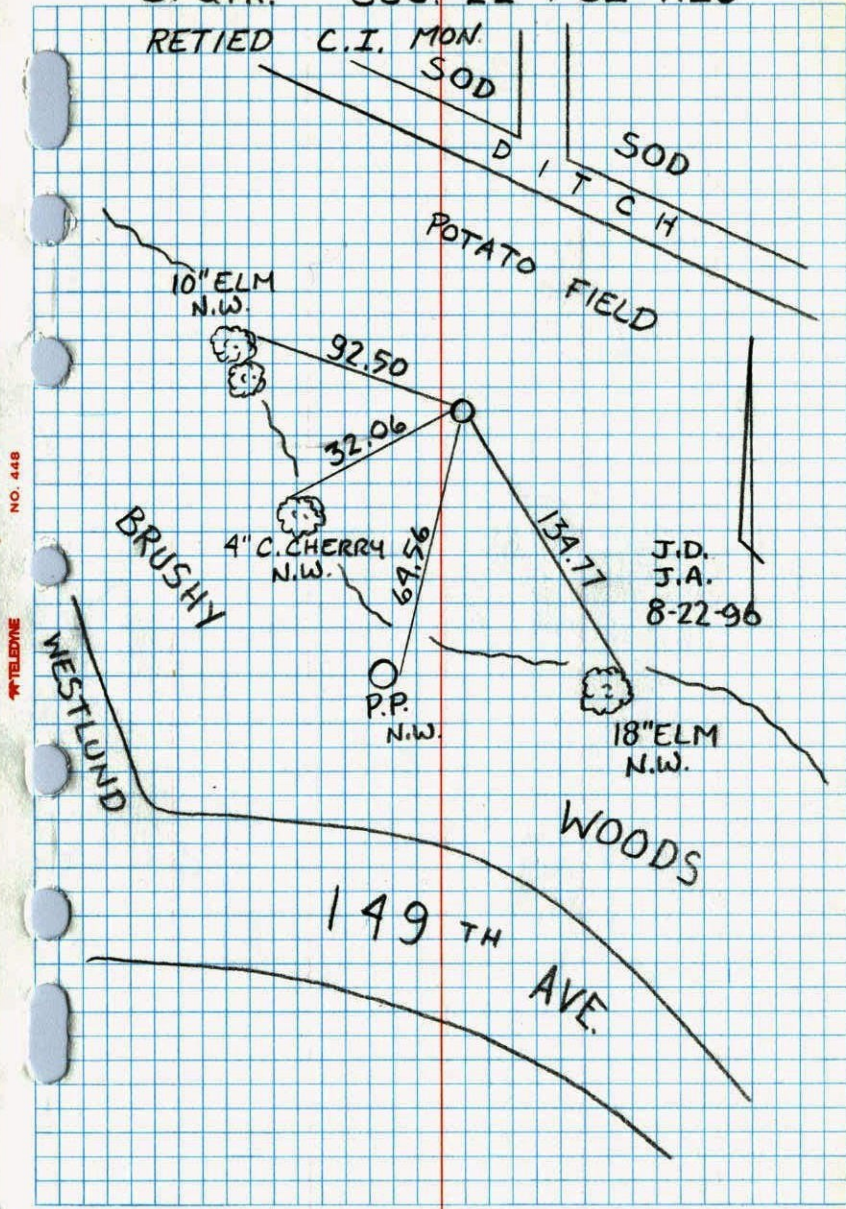 RETIED C.I. MON.
SOD
SOD
DITCH
POTATO FIELD
10" ELM
N.W.
92.50
32.06
4" C. CHERRY
N.W.
64.56
134.77
BRUSHY
J.D.
J.A.
8-22-96
P.P.
N.W.
18" ELM
N.W.
WESTLUND
WOODS
149TH AVE.
NO. 448
TELEDYNE